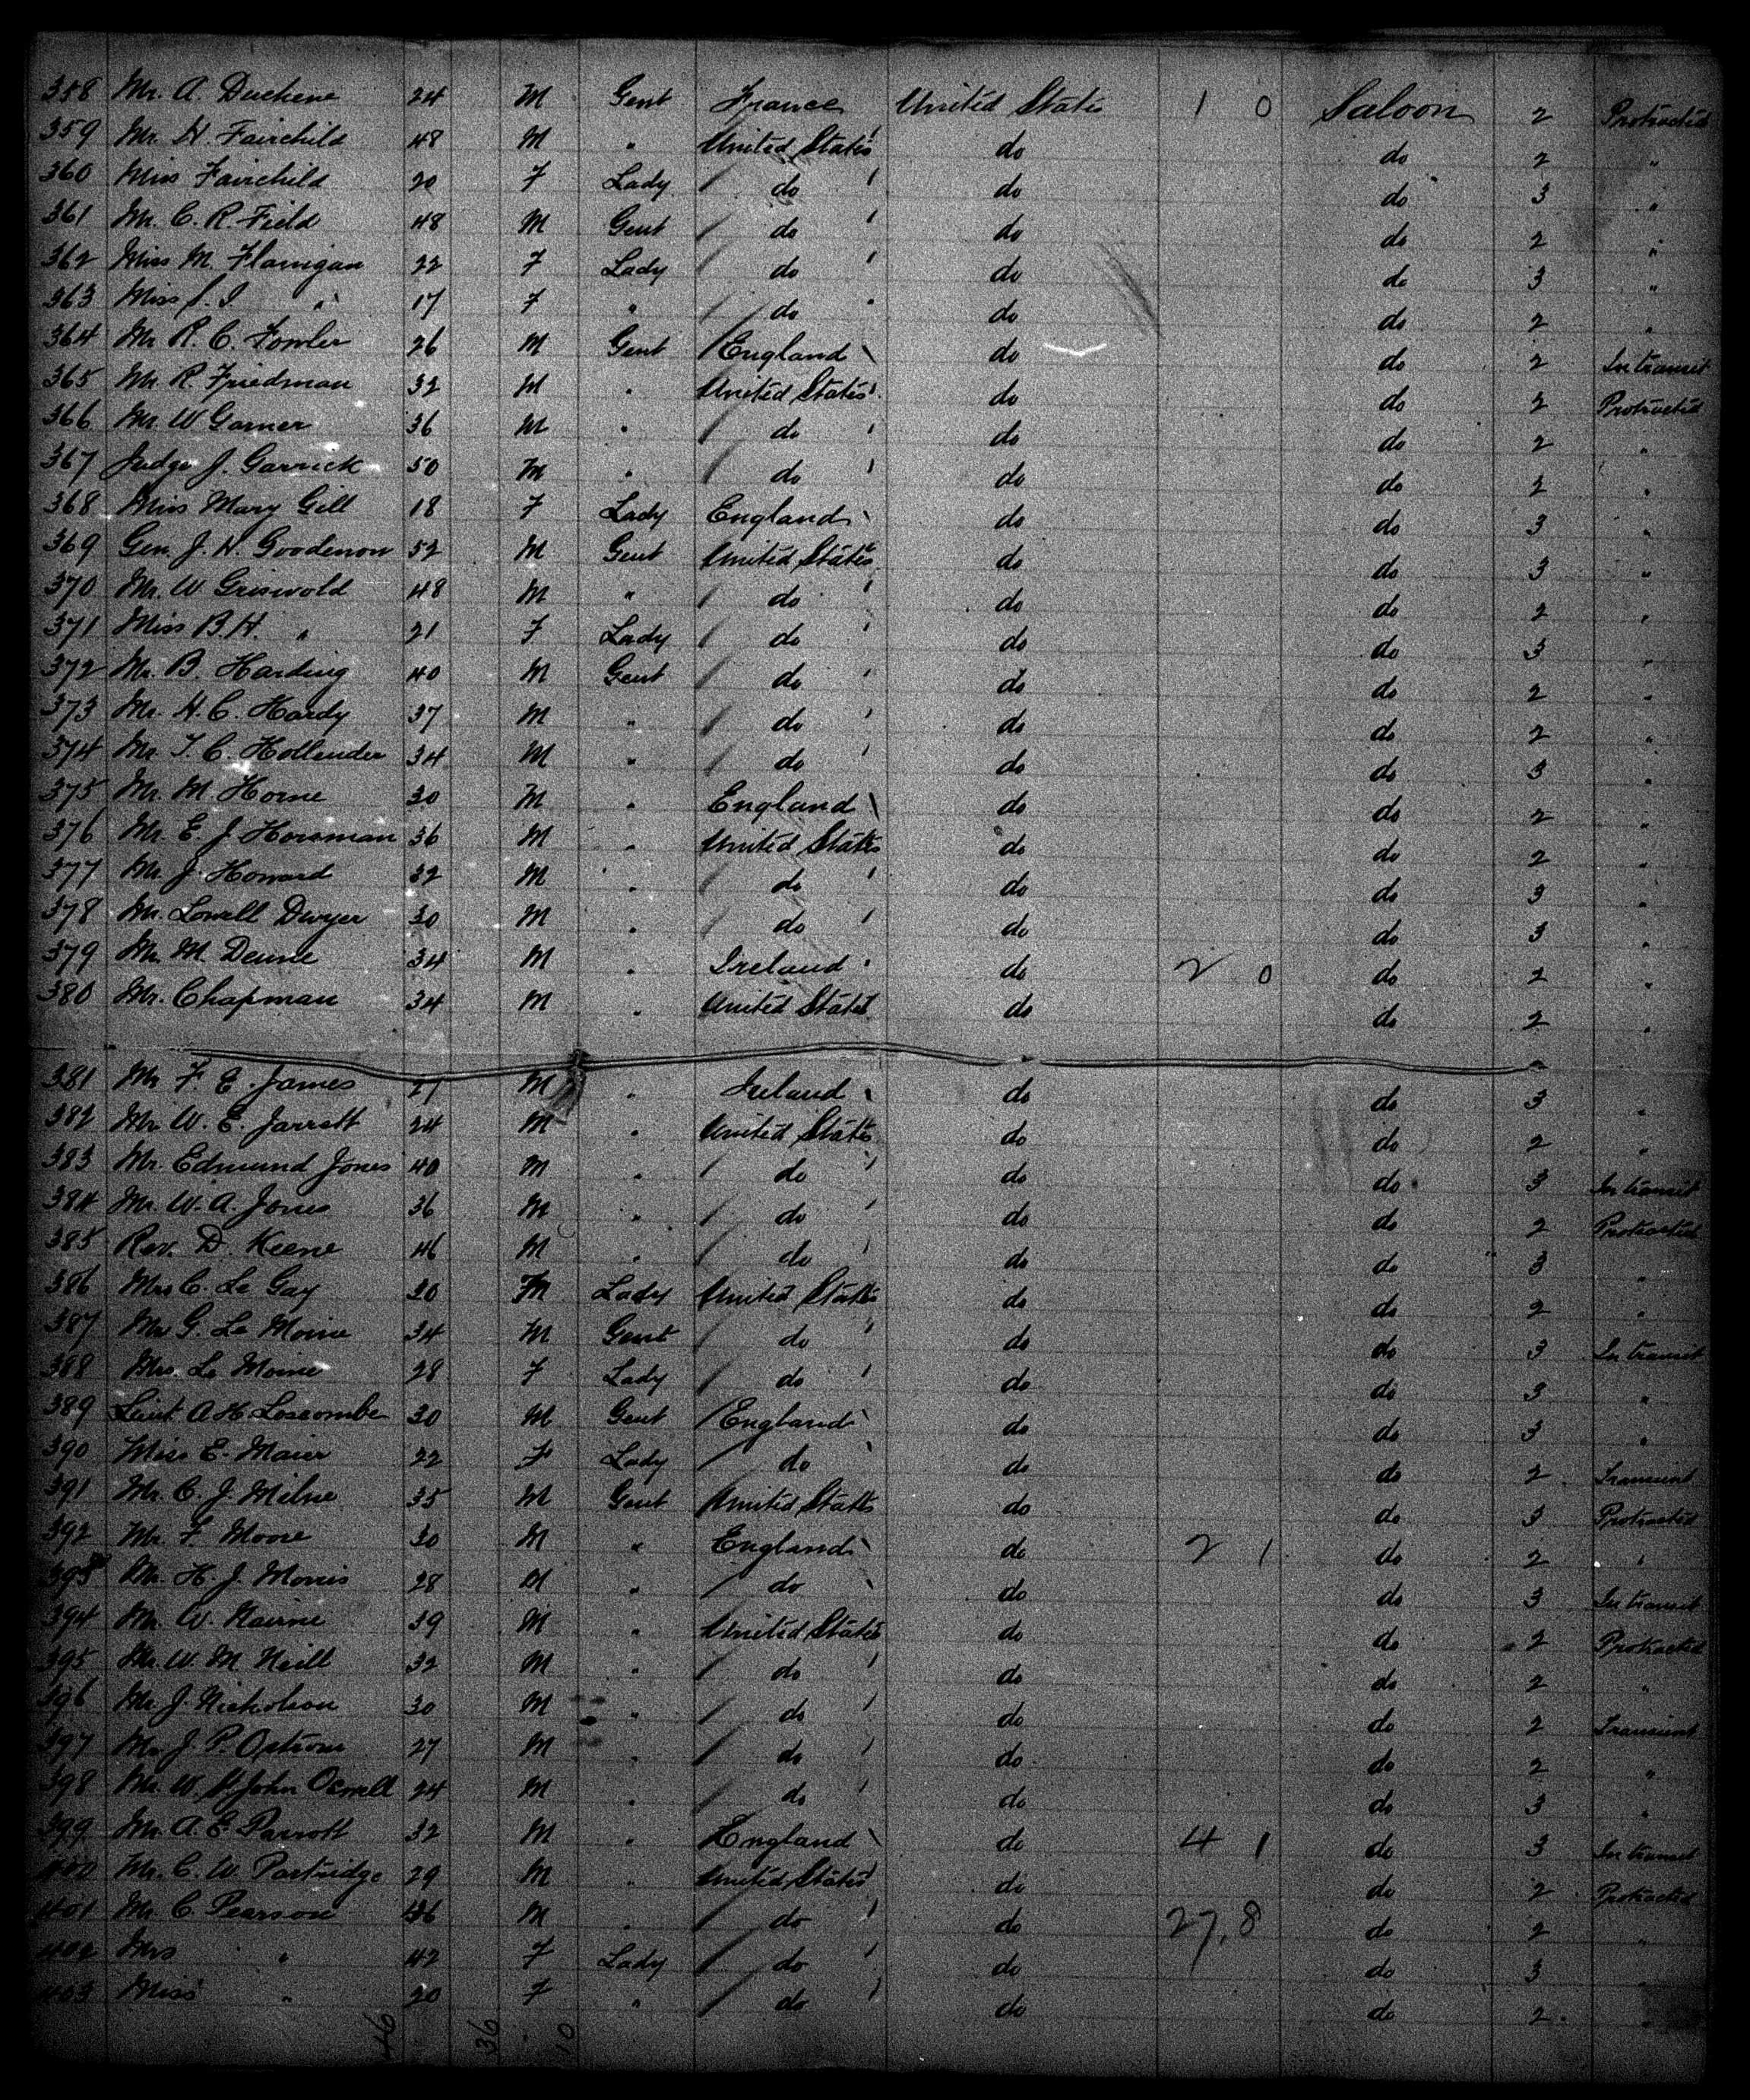 358 Mr. A. Duchene 24 M Gent France United States 1 0 Saloon 2 Protracted
359 Mr. H. Fairchild 48 M " United States do do 2 "
360 Miss Fairchild 20 F Lady do do do 3 "
361 Mr. C. R. Field 48 M Gent do do do 2 "
362 Miss M. Flanigan 22 F Lady do do do 3 "
363 Miss " 17 F " do do do 2 "
364 Mr R. C. Fowler 26 M Gent England do do 2 In transit
365 Mr R. Friedman 32 M " United States do do 2 Protracted
366 Mr. W Garner 36 M " do do do 2 "
367 Judge J. Garrick 50 M " do do do 2 "
368 Miss Mary Gill 18 F Lady England do do 3 "
369 Gen. J. H. Goodenow 52 M Gent United States do do 3 "
370 Mr. W Griswold 48 M " do do do 2 "
371 Miss B. H. " 21 F Lady do do do 3 "
372 Mr. B. Harding 40 M Gent do do do 2 "
373 Mr. H. C. Hardy 37 M " do do do 2 "
374 Mr. T. C. Hollender 34 M " do do do 3 "
375 Mr. M. Horne 30 M " England do do 2 "
376 Mr. E. J. Horsman 36 M " United States do do 2 "
377 Mr. J. Howard 32 M " do do do 3 "
378 Mr. Lowell Dwyer 30 M " do do do 3 "
379 Mr. M. 34 M " Ireland do 2 0 do 2 "
380 Mr. Chapman 34 M " United States do do 2 "
381 Mr F. E. James 27 M " Ireland do do 3 "
382 Mr W. E. Jarratt 24 M " United States do do 2 "
383 Mr. Edmund Jones 40 M " do do do 3 In transit
384 Mr. W. A. Jones 36 M " do do do 2 Protracted
385 Rev. D. Keene 46 M " do do do 3 "
386 Mrs C. Le Gay 30 Lady United States do do 2 "
387 Mr G. Le Moine 34 M Gent do do do 3 In transit
388 Mrs. Le Moine 28 F Lady do do do 3 "
389 Lieut. A H Loscombe 30 M Gent England do do 3 "
390 Miss E. Maier 22 F Lady do do do 2 Transient
391 Mr. C. J. Milne 35 M Gent United States do do 3 Protracted
392 Mr. F. Moore 30 M " England do 2 1 do 2 "
393 Mr. H. J. Morris 28 M " do do do 3 In transit
394 Mr. W. Nairne 39 M " United States do do 2 Protracted
395 Mr. W. M. Neill 32 M " do do do 2 "
396 Mr J. Nicholson 30 M " do do do 2 Transient
397 Mr J. P. Ostrom 27 M " do do do 2 "
398 Mr. W. St John 24 M " do do do 3 "
399 Mr. A. E. Parrott 32 M " England do 4 1 do 3 In transit
400 Mr. C. W. Partridge 29 M " United States do do 2 Protracted
401 Mr. C. Pearson 46 M " do do 27,8 do 2 "
402 Mrs " 42 F Lady do do do 3 "
403 Miss " 20 F " do do do 2 "
46 36 10